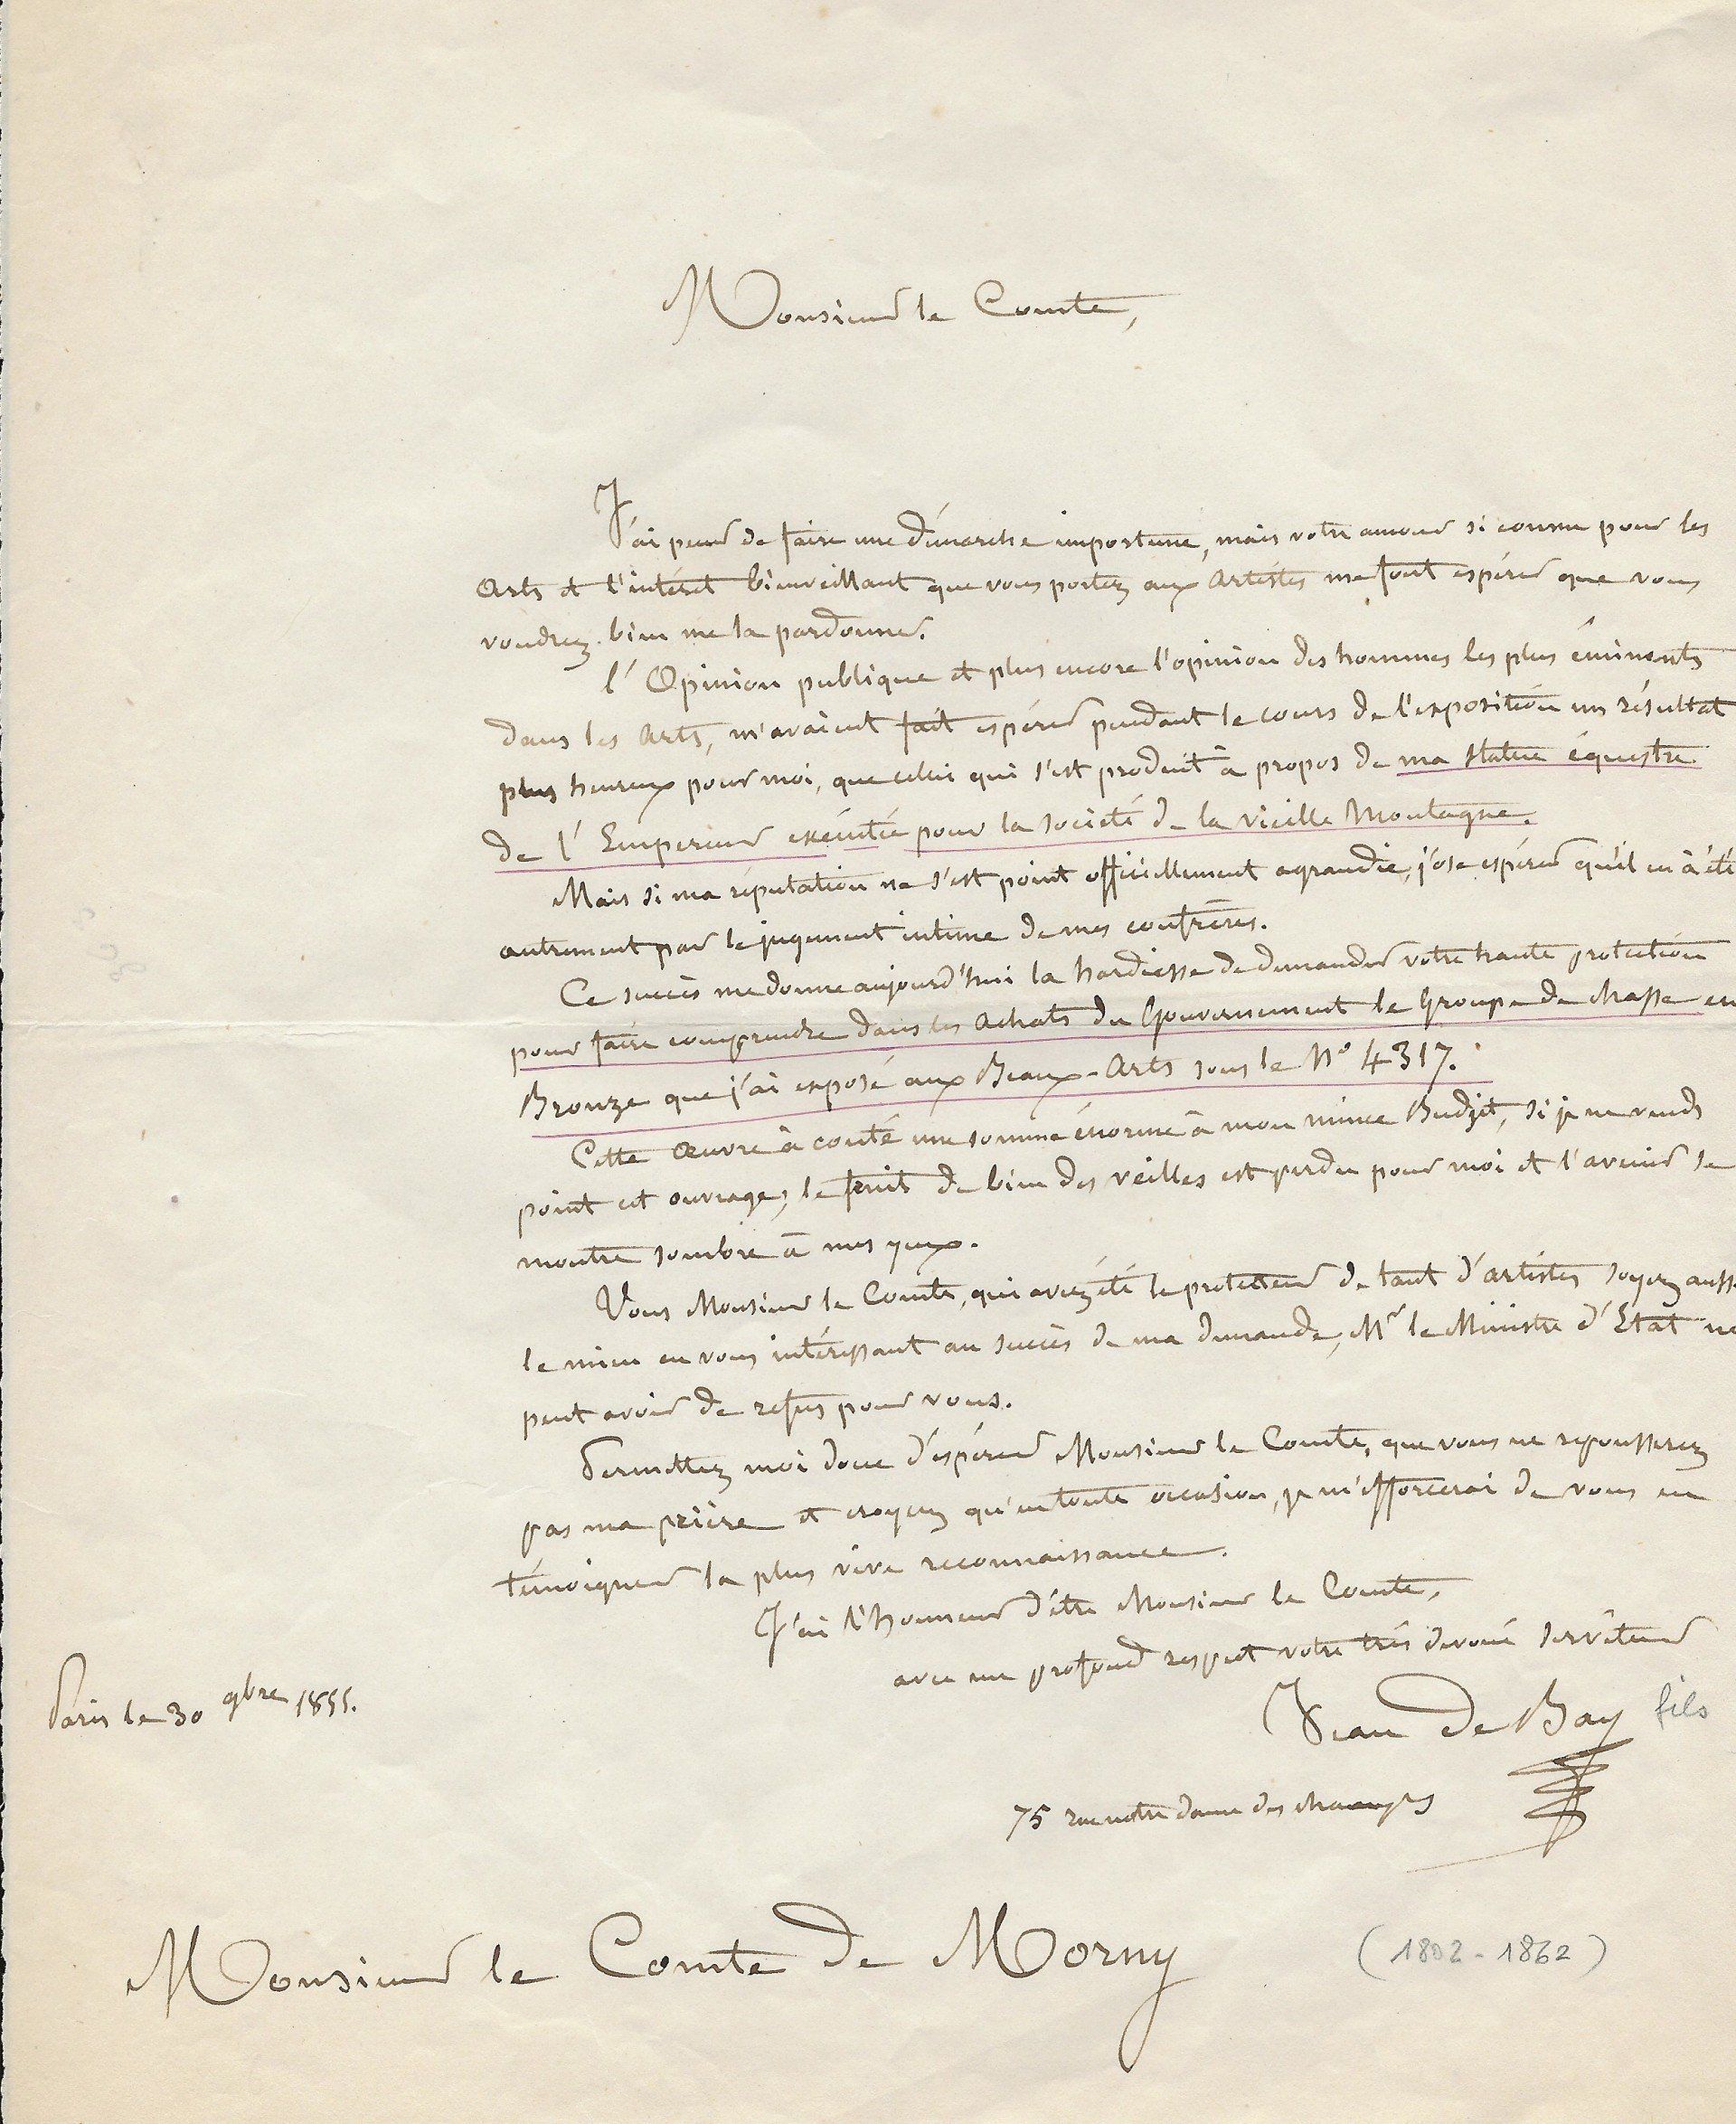 Monsieur le Comte,
J'ai peur de faire une démarche importune, mais votre amour si connu pour les
Arts et l'intéret bienveillant que vous portez aux Artistes me font espérer que vous
voudrez bien me la pardonner.
l'Opinion publique et plus encore l'opinion des hommes les plus éminents
dans les Arts, m'avaient fait espérer pendant le cours de l'exposition un résultat
plus heureux pour moi, que celui qui s'est produit à propos de ma statue équestre
de l'Empereur exécutée pour la société de la vieille Montagne.
Mais si ma réputation ne s'est point officiellement agrandie, j'ose espérer qu'il en à été
autrement par le jugement intime de mes confrères.
Ce succès me donne aujourd'hui la hardiesse de demander votre haute protection
pour faire comprendre dans les Achats du Gouvernement le Groupe de chasse en
Bronze que j'ai exposé aux Beaux-Arts sous le No 4317.
Cette Œuvre à couté une somme énorme à mon mince Budjet, si je ne vends
point cet ouvrage, le fruit de bien des veilles est perdu pour moi et l'avenir se
montre sombre à mes yeux.
Vous Monsieur le Comte, qui avez été le protecteur de tant d'artistes soyez aussi
le mien en vous intéressant au succès de ma demande, Mr le Ministre d'Etat ne
peut avoir de refus pour vous.
Permettez moi donc d'espérer Monsieur le Comte, que vous ne repousserez
pas ma prière et croyez qu'en toute occasion, je m'efforcerai de vous en
témoigner la plus vive reconnaissance.
J'ai l'honneur d'être Monsieur le Comte,
avec un profond respect votre très dévoué serviteur
Jean De Bay fils
Paris le 30 9bre 1855.
75 rue notre dame des champs
Monsieur le Comte de Morny
(1802-1862)